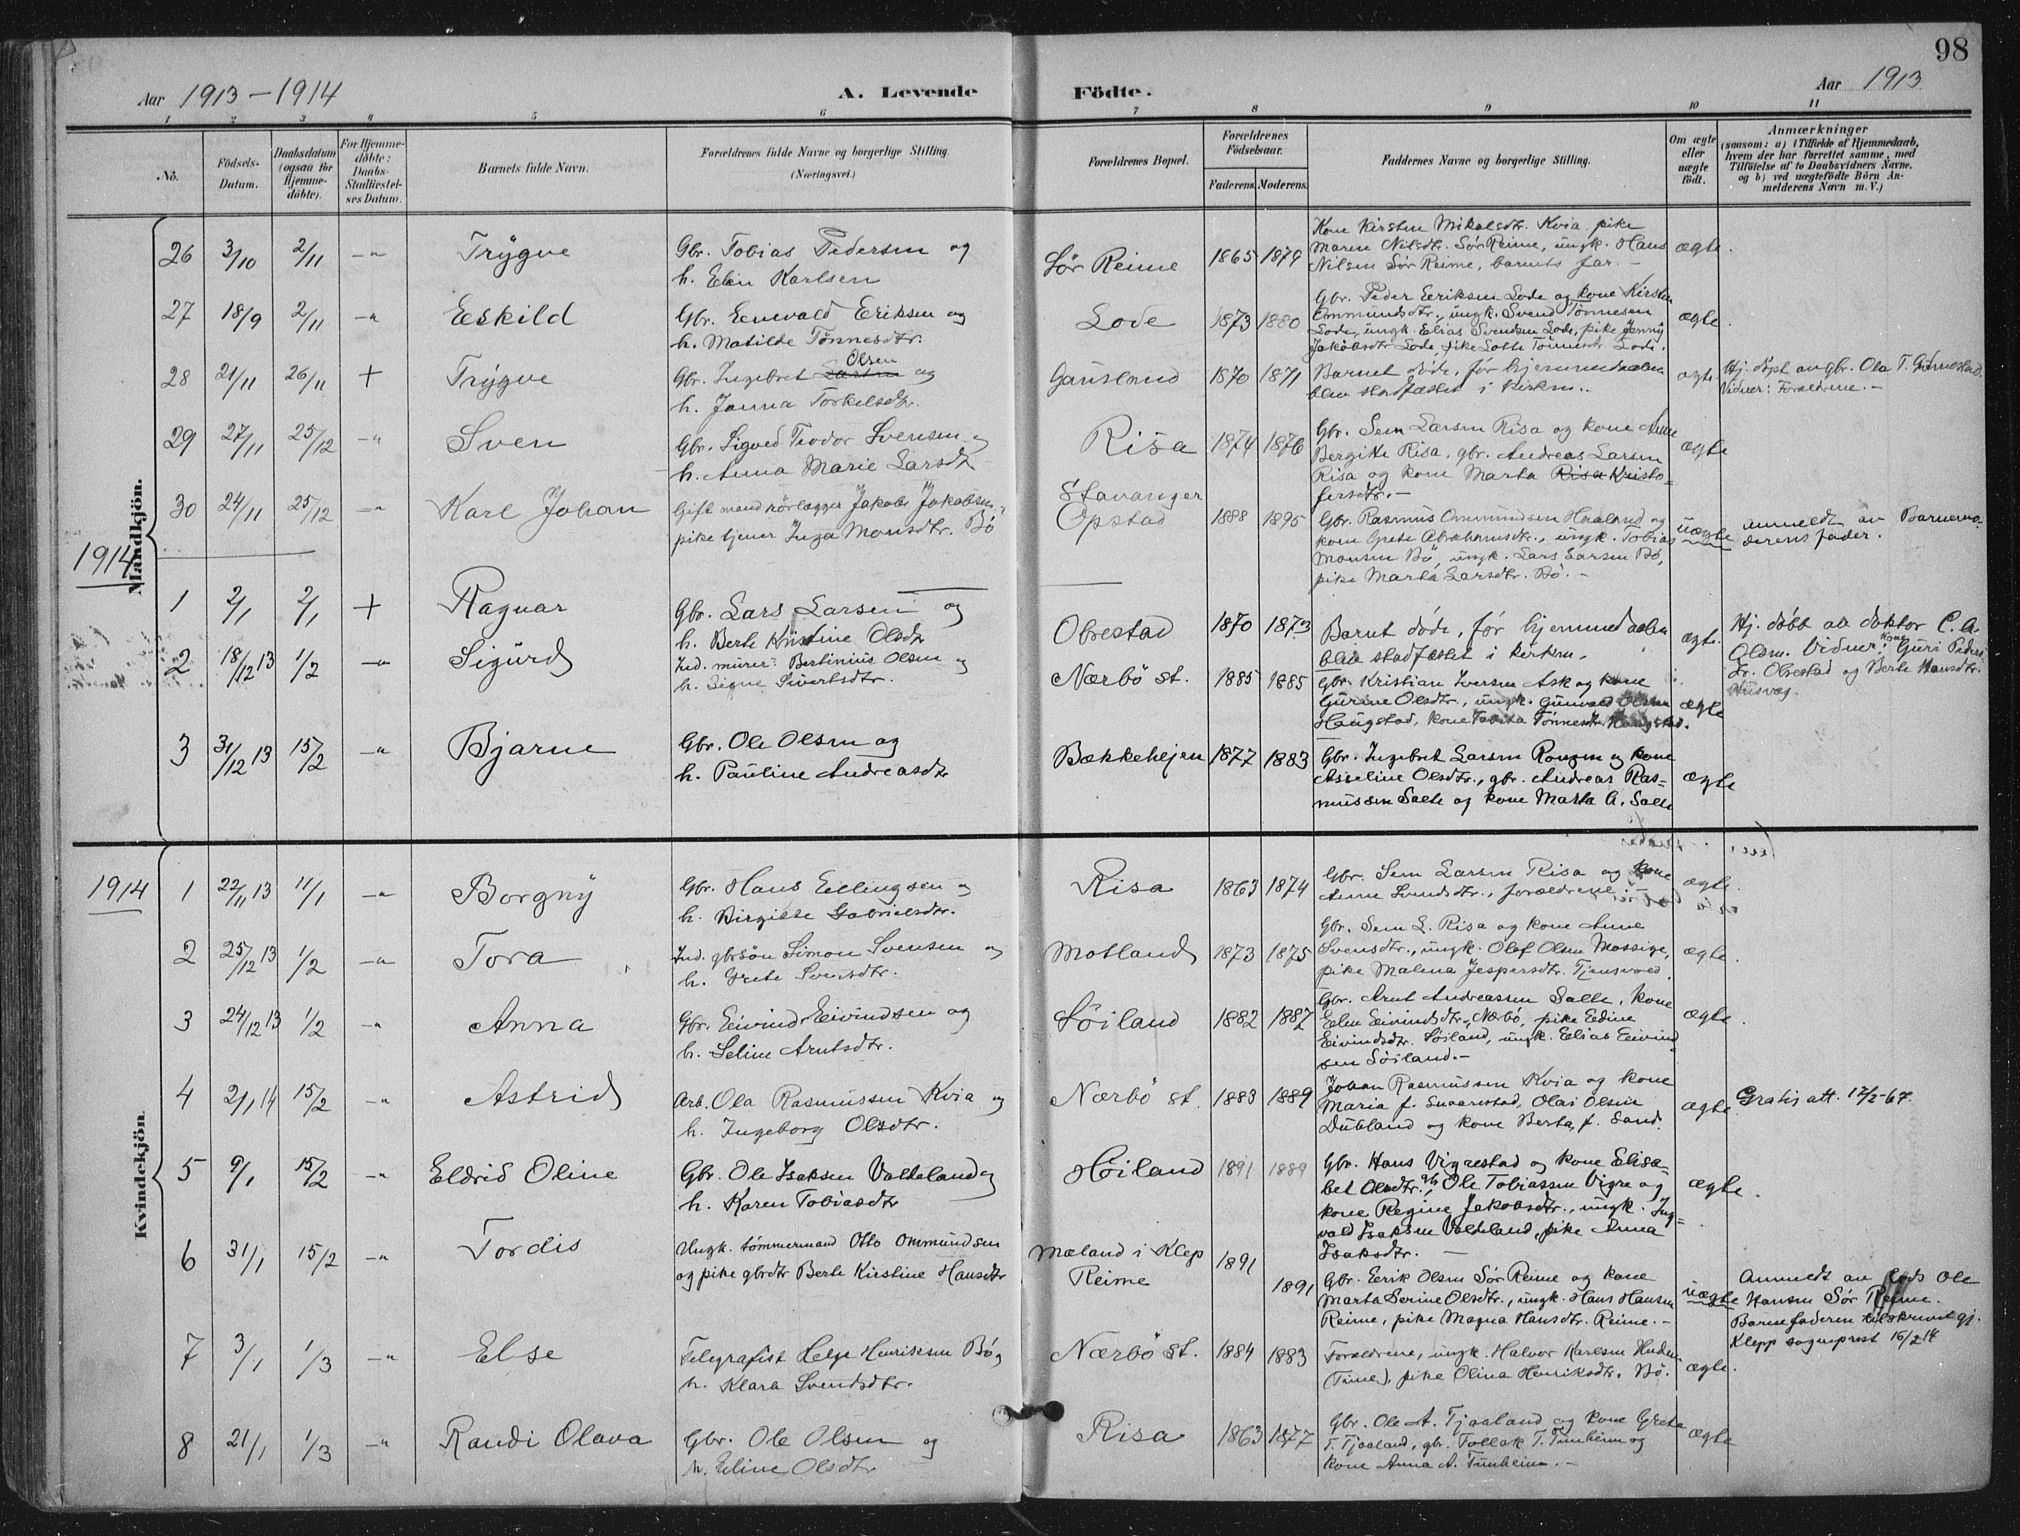 98
Aar 1913-1914
A. Levende
Födte.
Aar 1913
1 2 3 4 5 6 7 8 9 10 11
No.
Födsels-
Datum.
Daabsdatum
(ogsaa for
Hjemme-
döbte).
For Hjemme-
döbte:
Daabs-
Stadfæstel-
ses Datum.
Barnets fulde Navn.
Forældrenes fulde Navne og borgerlige Stilling.
(Næringsvei.)
Forældrenes Bopæl.
Forældrenes
Födselsaar.
Faderens. Moderens.
Faddernes Navne og borgerlige Stilling.
Om ægte
eller
uægte
födt.
Anmærkninger
(saasom: a) i Tilfælde af Hjemmedaab,
hvem der har forrettet samme, med
Tilföielse af to Daabsvidners Navne.
og b) ved uægtefödte Börn An-
melderens Navn m. V.)
Mandkjön.
26 3/10 2/11 -"- Trygve
Gbr. Tobias Pedersen og
h. Elin Karlsen
Sør Reime 1865 1879
Kone Kirsten Mikalsdtr. Kvia pike
Maren Nilsdtr. Sør Reime, ungk. Hans
Nilsen Sør Reime, barnets far. -
ægte.
27 18/9 2/11 -"- Eskild
Gbr. Enevald Eriksen og
h. Matilde Tönnesdtr.
Lode 1873 1880
Gbr. Peder Eeriksen Lode og kone Kirsten
Ommundsdtr., ungk. Svend Tönnesen
Lode, ungk. Elias Svendsen Lode, pike Jenny
Jakobsdtr Lode, pike Lotte Tönnesdtr. Lode.
ægte.
28 21/11 26/11 + Trygve
Olsen
Gbr. Ingebret Larsen og
h. Janna Torkelsdtr.
Gausland 1870 1871
Barnet døde, før hjemmedaaben
blev stadfæstet i kirken..
ægte.
Hj. døpt av gbr. Ola T.
Vidner: Forældrene. -
29 27/11 25/12 -"- Sven
Gbr. Sigved Teodor Svensen og
h. Anna Marie Larsdtr
Risa 1874 1876
Gbr. Sem Larsen Risa og kone Anne
Bergitte Risa, gbr. Andreas Larsen
Risa og kone Marta Risa Kristo-
fersdtr. -
ægte
30 24/11 25/12 -"- Karl Johan
Gift mand rörlægger Jakob Jakobsen,
pike tjener Inga Monsdtr. Bö
Stavanger
Opstad 1888 1895
Gbr. Rasmus Ommundsen Haaland og
kone Grete Abrahamsdtr., ungk. Tobias
Monsen Bö, ungk. Lars Larsen Bö,
pike Marta Larsdtr. Bö. -
uægte
anmeldt av Barnemo-
derens fader.
1914
1 2/1 2/1 + Ragnar
Gbr. Lars Larsen og
h. Berte Kristine Olsdtr
Obrestad 1870 1873
Barnet døde, før hjemmedaaben
blev stadfæstet i kirken.
ægte.
Hj. døbt av doktor C. A.
Olsen. Vidner: Kone Guri Peders-
dr. Obrestad og Berte Hansdtr.
Husvæg.
2 18/12 13 1/2 -"- Sigurd
Ind. murer Bertinius Olsen og
h. Signe Sivertsdtr.
Nærbö st. 1885 1885
Gbr. Kristian Iversen Ask og kone
Gurine Olsdtr., ungk. Gunvald Olsen
Haugstad, kone Tobita Tönnesdtr. Haugstad.
ægte
3 31/12 13 15/2 -"- Bjarne
Gbr. Ole Olsen og
h. Pauline Andreasdtr
Bækkehejen 1877 1883
Gbr. Ingebret Larsen Rongen og kone
Asseline Olsdtr., gbr. Andreas Ras-
mussen Salte og kone Marta A. Salte
ægte
Kvindekjön.
1914
1 22/11 13 11/1 -"- Borgny
Gbr. Hans Ellingsen og
h. Birgitte Gabrielsdtr.
Risa 1863 1874
Gbr. Sem Larsen Risa og kone
Anne Svendsdtr., forældrene. -
ægte.
2 25/12 13 1/2 -"- Tora
Ind. gbrsön Simon Svensen og
h. Grete Svensdtr.
Motland 1873 1875
Gbr. Sem L. Risa og kone Anne
Svensdtr., ungk. Olof Olsen Mossige,
pike Malena Jespersdtr. Tjensvold.
ægte.
3 24/12 13 1/2 -"- Anna
Gbr. Eivind Eivindsen og
h. Seline Arntsdtr.
Söiland 1882 1887
Gbr. Arnt Andreassen Salte, kone
Elen Eivindsdtr., Nærbö, pike Edine
Eivindsdtr. Söiland, ungk. Elias Eivind-
sen Söiland. -
ægte.
4 2/1 14 15/2 -"- Astrid
Arb. Ola Rasmussen Kvia og
h. Ingeborg Olsdtr.
Nærbö st. 1883 1889
Johan Rasmussen Kvia og kone
Maria f. Svarestad, Olai Olsen
Dubland og kone Berta, f. Sand.
ægte
Gratis att. 17/2-67.
5 9/1 15/2 -"- Eldrid Oline
Gbr. Ole Isaksen Valheland og
h. Karen Tobiasdtr
Höiland 1891 1889
Gbr. Hans Vigrestad og kone Elisa-
bet Olsdtr. gbr. Ole Tobiassen Vigre og
kone Regine Jakobsdtr., ungk. Ing-
vald Isaksen Valheland, pike Anna
Isaksdtr. -
ægte.
6 31/1 15/2 -"- Tordis
Ungk. tömmermand Otto Ommundsen
og pike gbrdtr Berte Kirstine Hansdtr
Mæland i Klep
Reime 1891 1891
Gbr. Eerik Olsen Sör Reime og kone
Marta Serine Olsdtr., ungk. Hans Hansen
Reime, pike Magna Hansdtr. Reime. -
uægte
Anmeldt av Lods Ole
Hansen Sör Reime.
Barnefaderen tilskrevet gj.
Klepp sogneprest 16/2 14
7 3/1 1/3 -"- Else
Telegrafist Helge Henriksen Bö og
h. Klara Svendsdtr.
Nærbö st. 1884 1883
Forældrene, ungk. Halvor Karlsen
(Time), pike Olina Henriksdtr. Bö.
ægte.
8 21/1 1/3 -"- Randi Olava
Gbr. Ole Olsen og
h. Eline Olsdtr
Risa 1863 1877
Gbr. Ole A. Tjaaland og kone Grete
T. Tjaaland, gbr. Tollak T. Tunheim og
kone Anna A. Tunheim. -
ægte